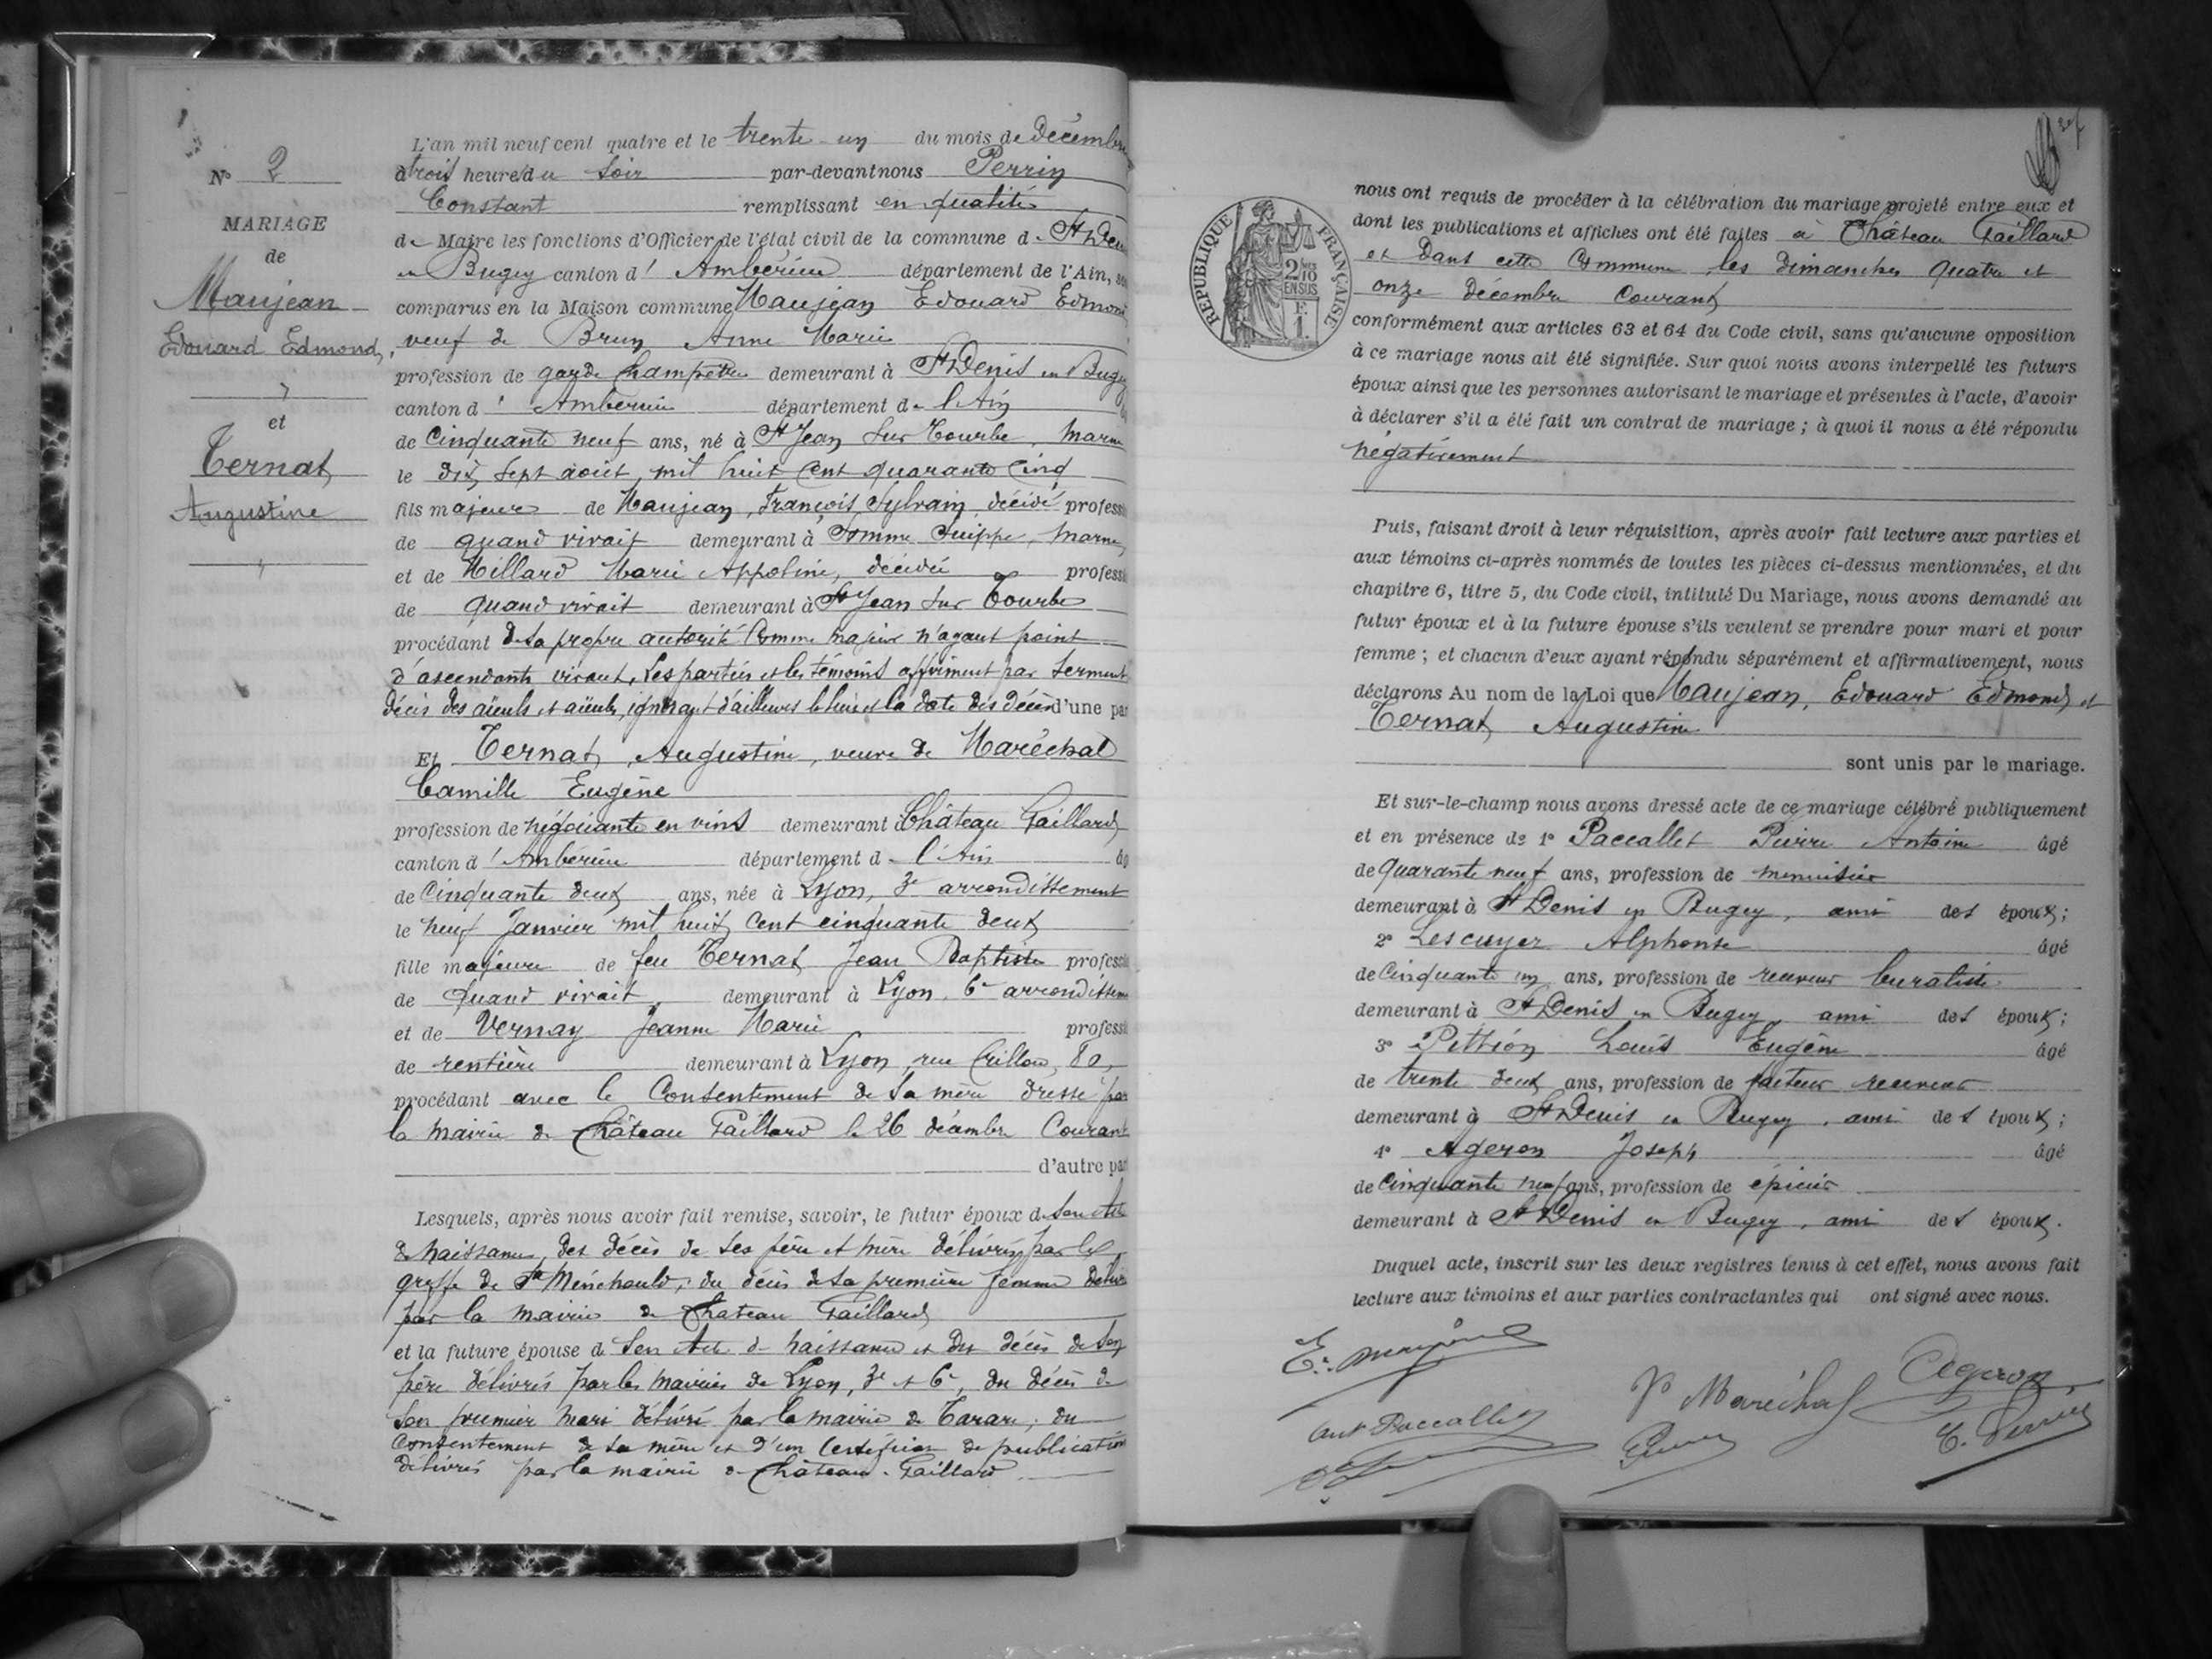 N° 2
MARIAGE
de
Maujean
Edouard Edmond,
et
Ternat
Augustine
L'an mil neuf cent quatre et le trente-un du mois de décembre
à trois heures du soir par-devant nous Perrin
Constant remplissant en qualité
de Maire les fonctions d'Officier de l'état civil de la commune de St Denis
en Bugey canton d' Ambérieu département de l'Ain, sont
comparus en la Maison commune Maujean Edouard Edmond
veuf de Brun Anne Marie
profession de garde champêtre demeurant à St Denis en Bugey
canton d' Ambérieu département de l'Ain
de cinquante neuf ans, né à St Jean sur Tourbe, Marne
le dix sept août mil huit cent quarante cinq
fils majeur de Maujean, François Sylvain, décédé profession
de quand vivait demeurant à Somme Suippe, Marne,
et de Millard Marie Appoline, décédée profession
de quand vivait demeurant à St Jean sur Tourbe
procédant de sa propre autorité comme majeur n'ayant point
d'ascendants vivant, les parties et les témoins affirment par serment
décès des aïeuls et aïeules, ignorant d'ailleurs le lieu et la date des décès d'une part
Et Ternat, Augustine, veuve de Maréchal
Camille Eugène
profession de négociante en vins demeurant à Château Gaillard
canton d' Ambérieu département de l'Ain âg
de cinquante deux ans, née à Lyon, 3e arrondissement
le neuf Janvier mil huit cent cinquante deux
fille majeure de feu Ternat Jean Baptiste profession
de quand vivait, demeurant à Lyon, 6e arrondissement
et de Vernay Jeanne Marie profession
de rentière demeurant à Lyon, rue Crillon, 80,
procédant avec le consentement de sa mère dressé par
la mairie de Château Gaillard le 26 décembre courant
d'autre part
Lesquels, après nous avoir fait remise, savoir, le futur époux de son acte
de naissance, des décès de ses père et mère délivrés par le
greffe de Ste Ménehould; du décès de sa première femme délivré
par la mairie de Château Gaillard
et la future épouse de son acte de naissance et du décès de son
père délivrés par les mairies de Lyon, 3e et 6e, du décès de
son premier mari délivré par la mairie de Tarare; du
consentement de sa mère et d'un certificat de publication
délivrés par la mairie de Château-Gaillard
RÉPUBLIQUE FRANÇAISE
2/10
EN SUS
F.
1.
nous ont requis de procéder à la célébration du mariage projeté entre eux et
dont les publications et affiches ont été faites à Château Gaillard
et dans cette commune les dimanches quatre et
onze décembre courant
conformément aux articles 63 et 64 du Code civil, sans qu'aucune opposition
à ce mariage nous ait été signifiée. Sur quoi nous avons interpellé les futurs
époux ainsi que les personnes autorisant le mariage et présentes à l'acte, d'avoir
à déclarer s'il a été fait un contrat de mariage; à quoi il nous a été répondu
négativement
Puis, faisant droit à leur réquisition, après avoir fait lecture aux parties et
aux témoins ci-après nommés de toutes les pièces ci-dessus mentionnées, et du
chapitre 6, titre 5, du Code civil, intitulé Du Mariage, nous avons demandé au
futur époux et à la future épouse s'ils veulent se prendre pour mari et pour
femme; et chacun d'eux ayant répondu séparément et affirmativement, nous
déclarons Au nom de la Loi que Maujean, Edouard Edmond et
Ternat Augustine
sont unis par le mariage.
Et sur-le-champ nous avons dressé acte de ce mariage célébré publiquement
et en présence de 1° Paccallet Pierre Antoine âgé
de quarante neuf ans, profession de menuisier
demeurant à St Denis en Bugey, ami des époux;
2° Lescuyer Alphonse âgé
de cinquante un ans, profession de receveur buraliste
demeurant à St Denis en Bugey, ami des époux;
3° Pittion Louis Eugène âgé
de trente deux ans, profession de facteur receveur
demeurant à St Denis en Bugey, ami des époux;
4° Ageron Joseph âgé
de cinquante neuf ans, profession de épicier
demeurant à St Denis en Bugey, ami des époux.
Duquel acte, inscrit sur les deux registres tenus à cet effet, nous avons fait
lecture aux témoins et aux parties contractantes qui ont signé avec nous.
Ageron
Ve Maréchal
Ant Paccallet
C. Perrin